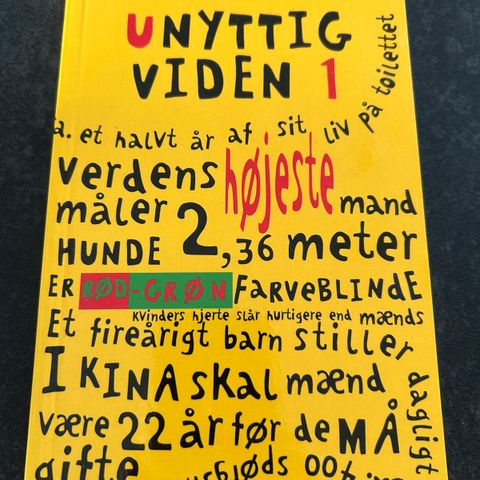 UNYTTIG
VIDEN 1
a. et halvt år af sit liv på toilettet
verdens højeste
måler 2,36 meter mand
HUNDE
ER RØD-GRØN FARVEBLINDE
Kvinders hjerte slår hurtigere end mænds
Et fireårigt barn stiller
dagligt
I KINA SKAL mænd
være 22 år før de MÅ
gifte
400